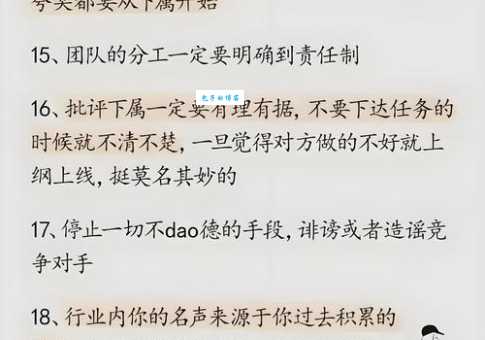 夸奖都要从下属开始
15、团队的分工一定要明确到责任制
16、批评下属一定要有理有据，不要下达任务的
时候就不清不楚，一旦觉得对方做的不好就上
纲上线，挺莫名其妙的
17、停止一切不dao德的手段，诽谤或者造谣竞
争对手
18、行业内你的名声来源于你过去积累的